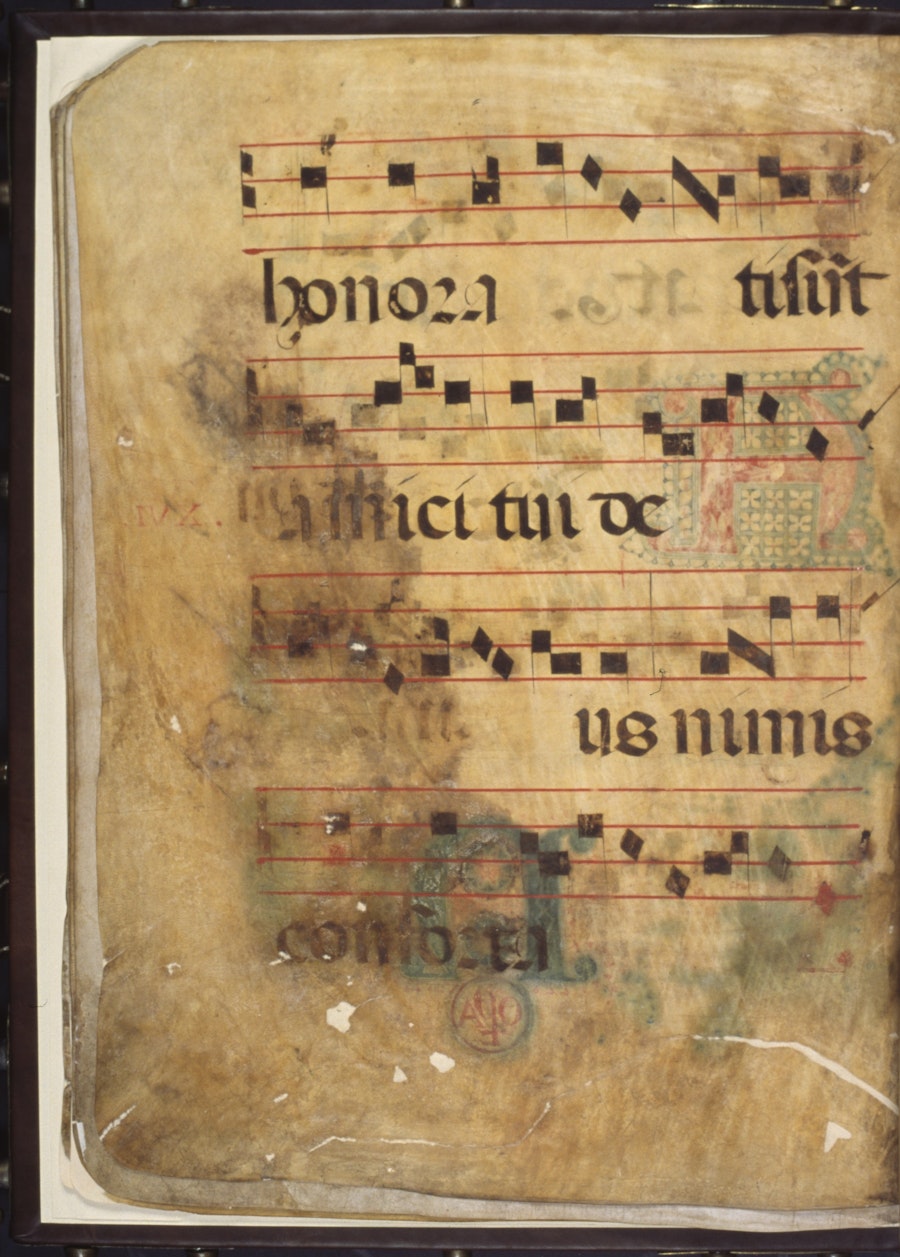 honora tisūt
amici tui de
us nimis
conforta